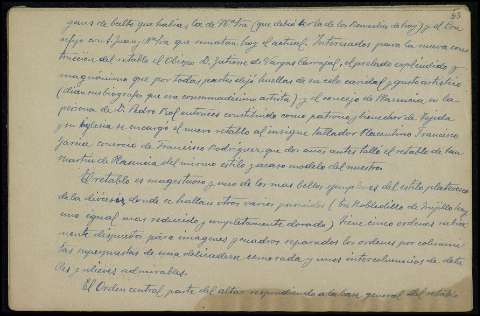 53
genes de bulto que había, la de Nª Srª (que debió ser la de los Remedios de hoy) y el Cru
cifijo con S. Juan y Nª Sra que rematan hoy el actual. Interesados para la nueva cons
trucción del retablo el Obispo D. Gutierre de Vargas Carvajal, el prelado espléndido y
magnánimo que por todas partes dejó huellas de su celo caridad y gusto artístico
y el concejo de Plasencia, en la
persona de D. Pedro entonces constituido como patrono y bienhechor de Tejeda
y su Iglesia se encargó el nuevo retablo al insigne tallador Placentino Francisco
García convecino de Francisco Rodríguez que dos años antes talló el retablo de San
Martín de Plasencia del mismo estilo y acaso modelo del nuestro
El retablo es magestuoso y uno de los mas bellos ejemplares del estilo plateresco
de la diócesis, donde se hallan otros varios parecidos (en Robledillo de Trujillo hay
uno igual mas reducido y completamente dorado) tiene cinco ordenes
mente dispuestos para imagenes y cuadros separados los ordenes por columni
tas superpuestas de una delicadeza esmerada y unos intercolumnios de deta
lles y relieves admirables.
El Orden central, parte del altar respondiendo a la base general del retablo